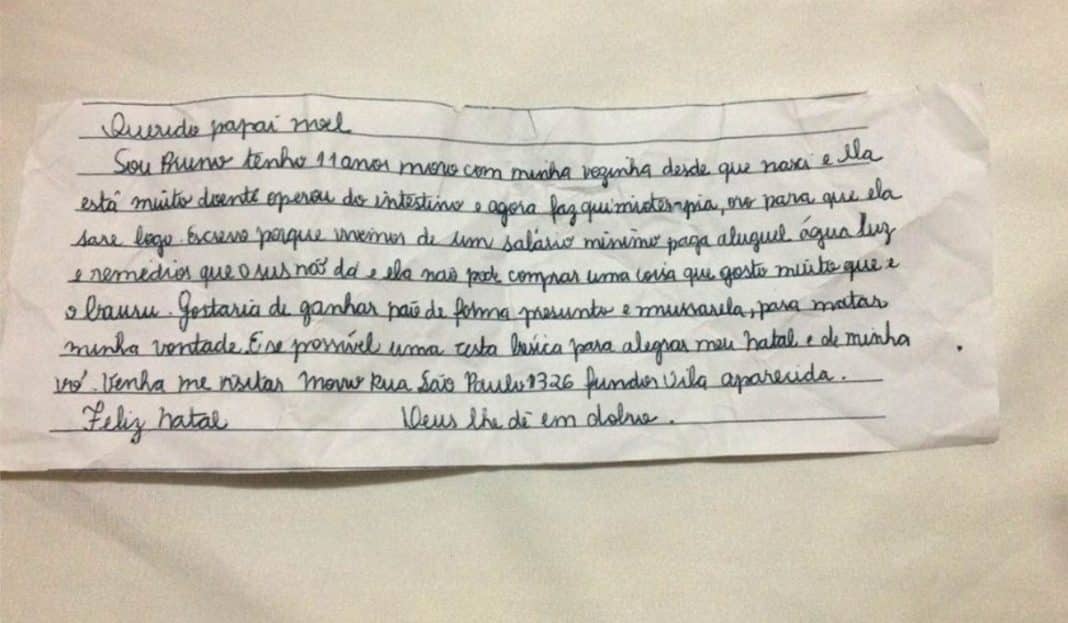 Querido papai noel
Sou Bruno tenho 11 anos moro com minha vozinha desde que nasci e Ela
está muito doente operou do intestino e agora faz quimioterapia, oro para que ela
sare logo. Escrevo porque vivemos de um salário minimo paga aluguel água luz
e remedios que o sus não dá e ela não pode comprar uma coisa que gosto muito que e
o bauru. Gostaria de ganhar pão de forma presunto e mussarela, para matar
minha vontade. E se possível uma cesta básica para alegrar meu natal e de minha
vó. Venha me visitar Moro Rua São Paulo 1326 fundos Vila aparecida.
Feliz natal Deus lhe dê em dobro.